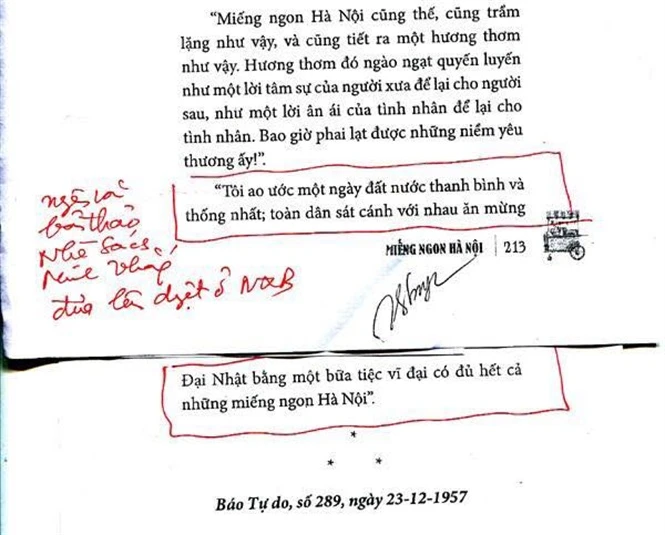 “Miếng ngon Hà Nội cũng thế, cũng trầm
lặng như vậy, và cũng tiết ra một hương thơm
như vậy. Hương thơm đó ngào ngạt quyến luyến
như một lời tâm sự của người xưa để lại cho người
sau, như một lời ân ái của tình nhân để lại cho
tình nhân. Bao giờ phai lạt được những niềm yêu
thương ấy!”.
“Tôi ao ước một ngày đất nước thanh bình và
thống nhất; toàn dân sát cánh với nhau ăn mừng
bản thảo
Nhã
đưa lên duyệt ở NXB
MIẾNG NGON HÀ NỘI | 213
Đại Nhật bằng một bữa tiệc vĩ đại có đủ hết cả
những miếng ngon Hà Nội”.
*
* *
Báo Tự do, số 289, ngày 23-12-1957